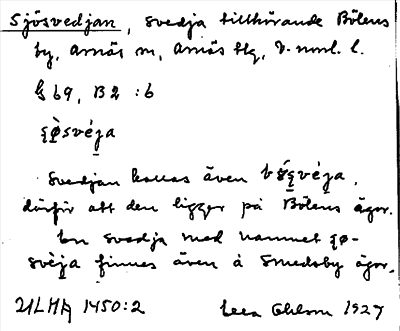 Sjösvedjan, svedja tillhörande Bölens
by, Arnäs sn, Arnäs tlg, V. nml. l.
G 69, B2 : b
ʂø̀svéja
Svedjan kallas även bǿʂvéja,
därför att den ligger på Bölens ägor.
En svedja med namnet ʂø-
svèja finnes även å Smedsby ägor.
ULMA 1450:2 Ohlson 1927